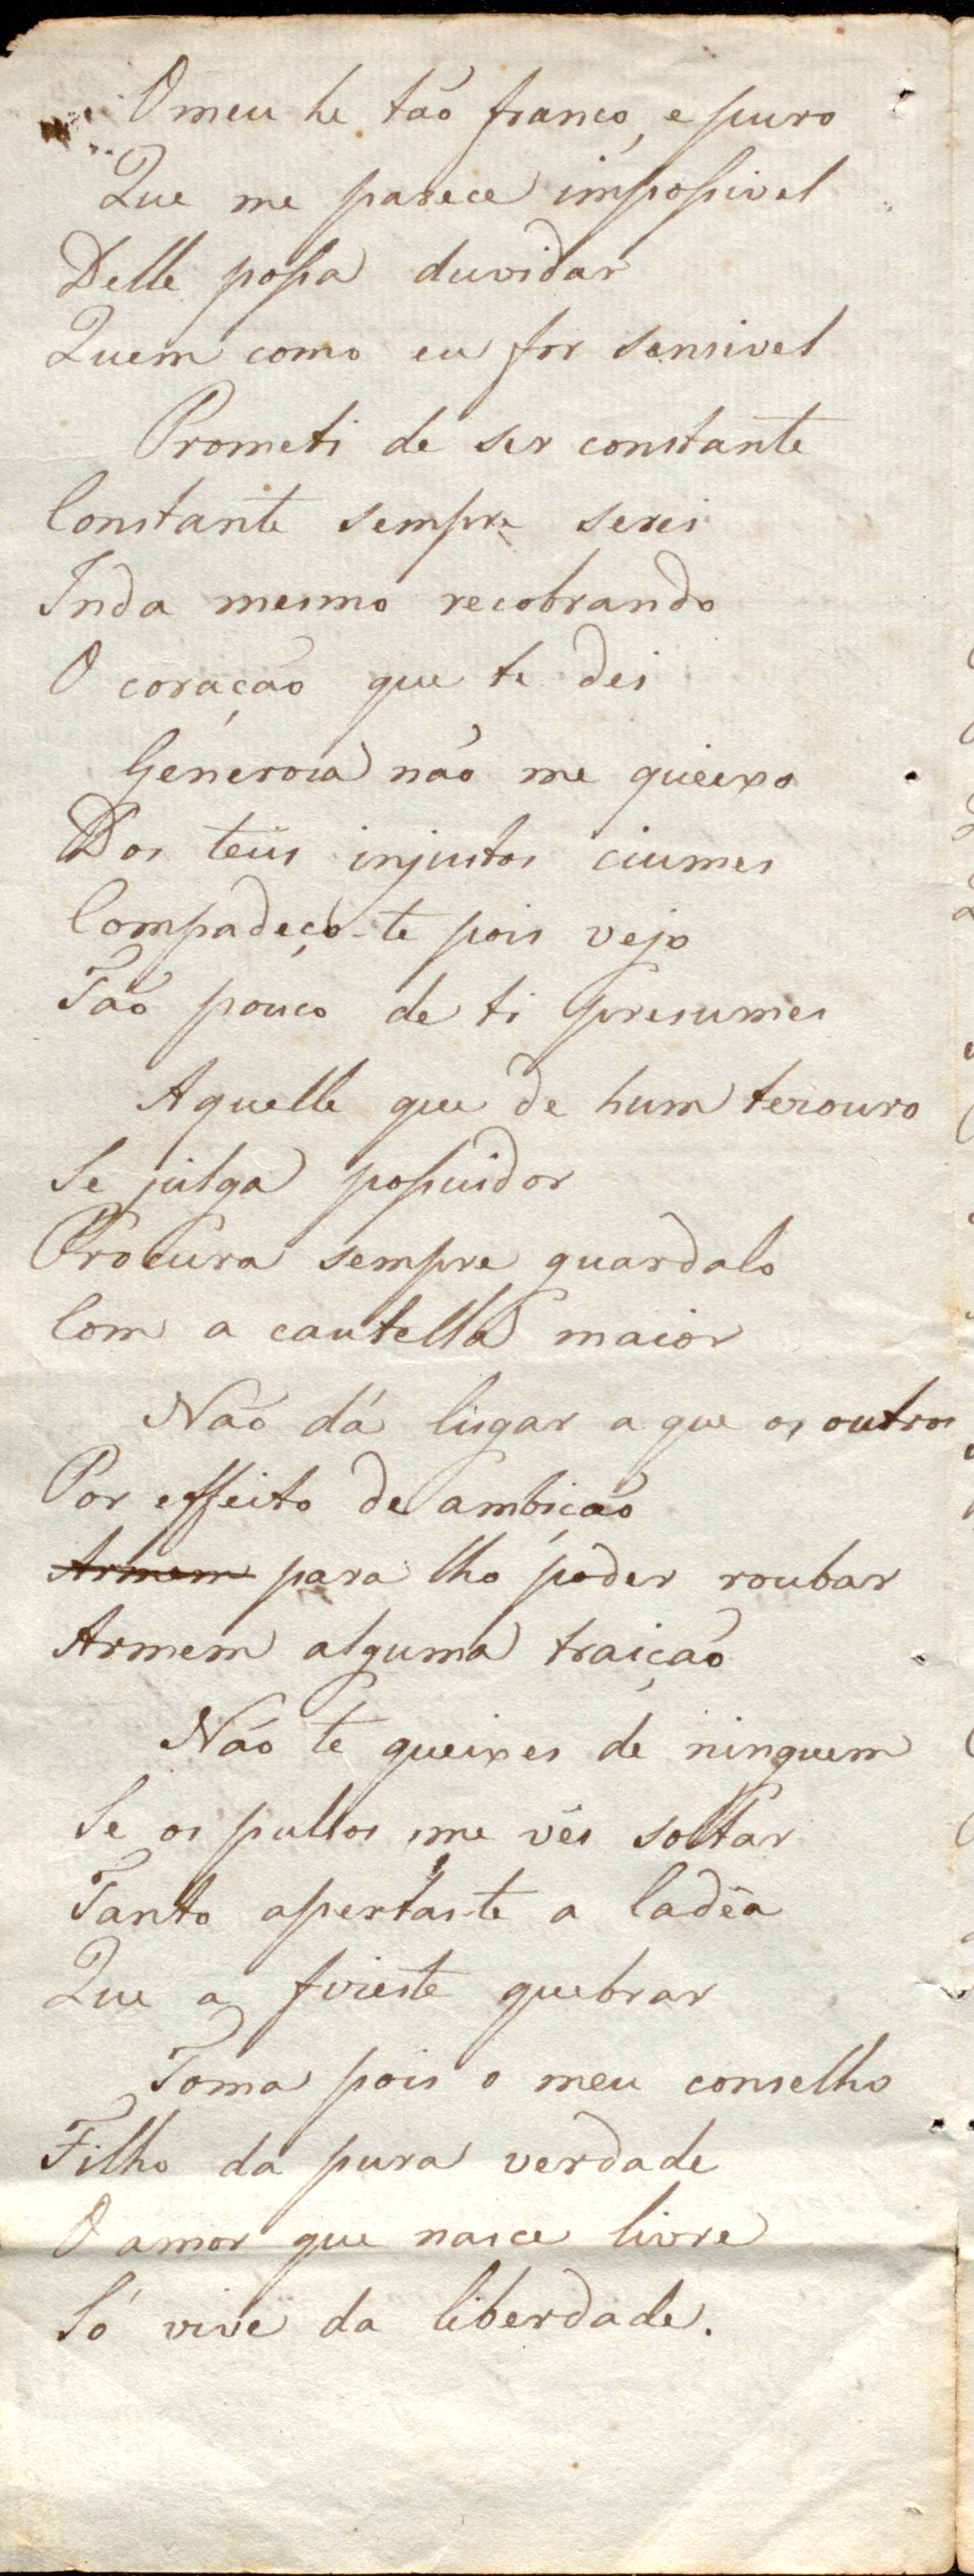 O meu he tão franco, e puro
Que me parece impossivel
Delle possa duvidar
Quem como eu for sensivel
Prometi de ser constante
Constante sempre serei
Inda mesmo recobrando
O coração que te dei
Generosa não me queixo
Dos teus injustos ciumes
Compadeço-te pois vejo
Tão pouco de ti presumes
Aquelle que de hum tesouro
Se julga possuidor
Procura sempre guardalo
Com a cautella maior
Não dá lugar a que os outros
Por effeito de ambição
Armem para lho poder roubar
Armem alguma traição
Não te queixes de ninguem
Se os pulsos me vês soltar
Tanto apertaste a Cadêa
Que a fizeste quebrar
Toma pois o meu conselho
Filho da pura verdade
O amor que nasce livre
Só vive da liberdade.